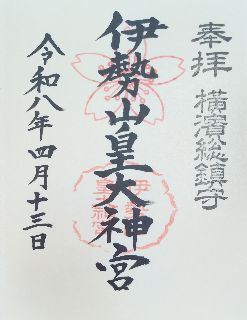 奉拝 横濱総鎮守
伊勢山皇大神宮
令和八年四月十三日